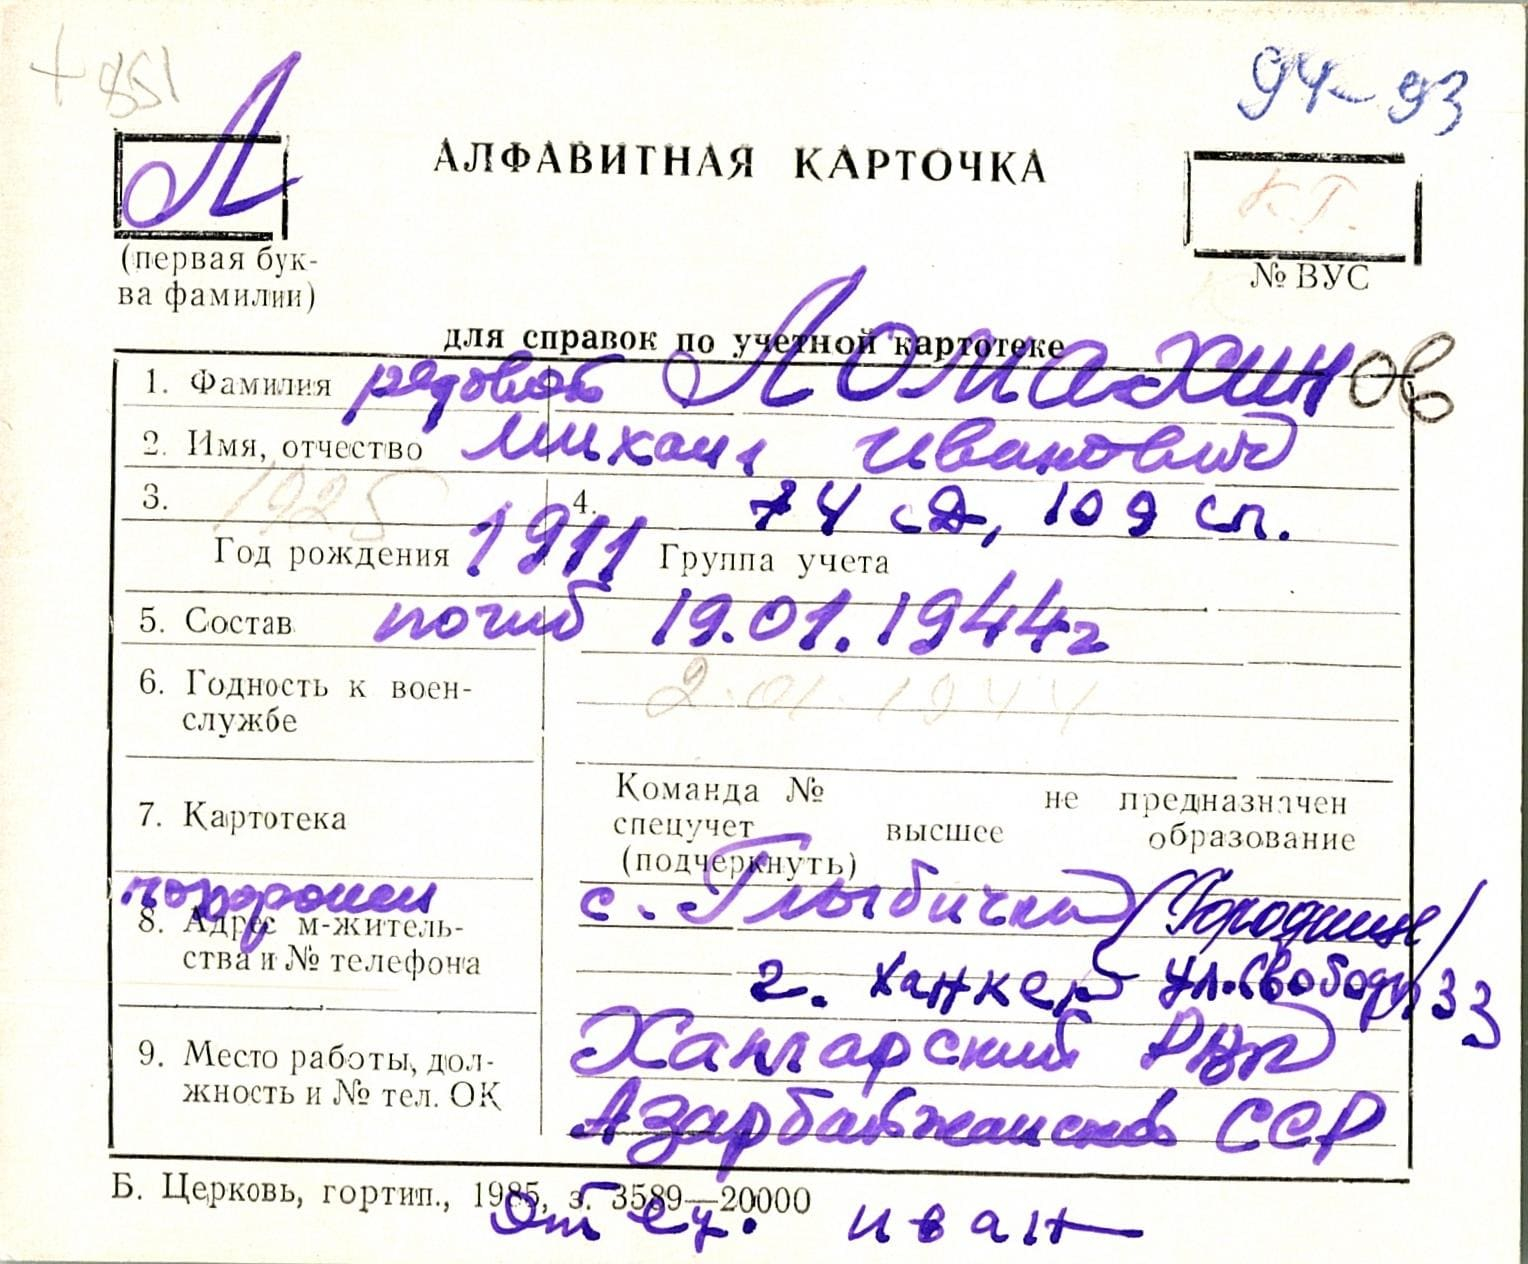 + 851
94-93
Л
АЛФАВИТНАЯ КАРТОЧКА
К.Г.
(первая бук-
ва фамилии)
№ ВУС
для справок по учетной картотеке
1. Фамилия рядовой Ломахинов
2. Имя, отчество Михаил Иванович
3. 1925 4. 74 сд, 109 сп.
Год рождения 1911 Группа учета
5. Состав погиб 19.01.1944г
6. Годность к воен-
службе
2.01.1944
Команда № не предназначен
7. Картотека
спецучет высшее образование
(подчеркнуть)
похоронен с. Глыбичка (Городище)
8. Адрес м-житель-
ства и № телефона
г. Ханкер ул. Свободы 33
9. Место работы, дол-
жность и № тел. ОК
Хангарский РВК
Азарбайжанской ССР
Б. Церковь, гортип., 1985, з. 3589—20000
Отец. Иван